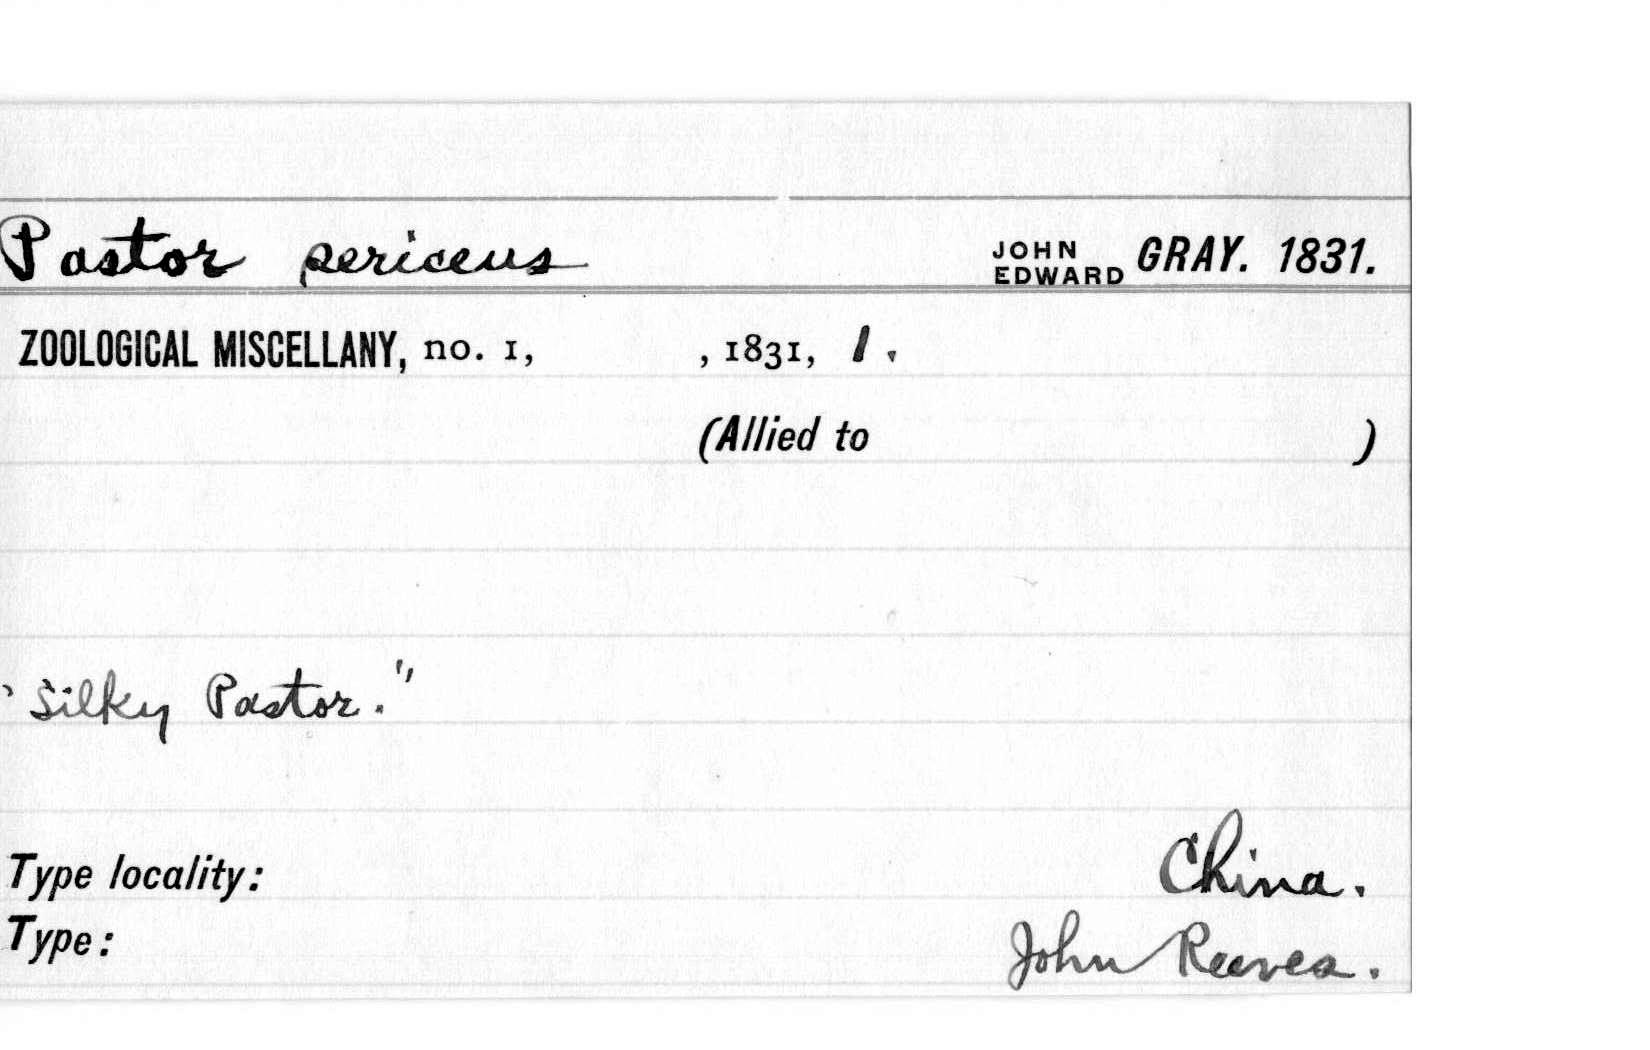 Pastor sericeus JOHN EDWARD GRAY. 1831.
ZOOLOGICAL MISCELLANY, no. 1, , 1831, 1.
(Allied to )
"Silky Pastor."
Type locality: China.
Type: John Reeves.